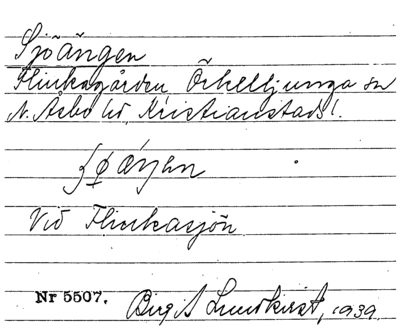 Sjöängen
Flinkagården, Örkelljunga sn
N. Åsbo hd, Kristianstads l.
Vid Flinkasjön
Nr 5507. Birgit Lundkvist, 1939.